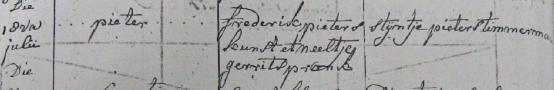 Die
julii
pieter
frederik pieters
kunst et neeltje
gerrits prons
styntje pieters timmerman
Die